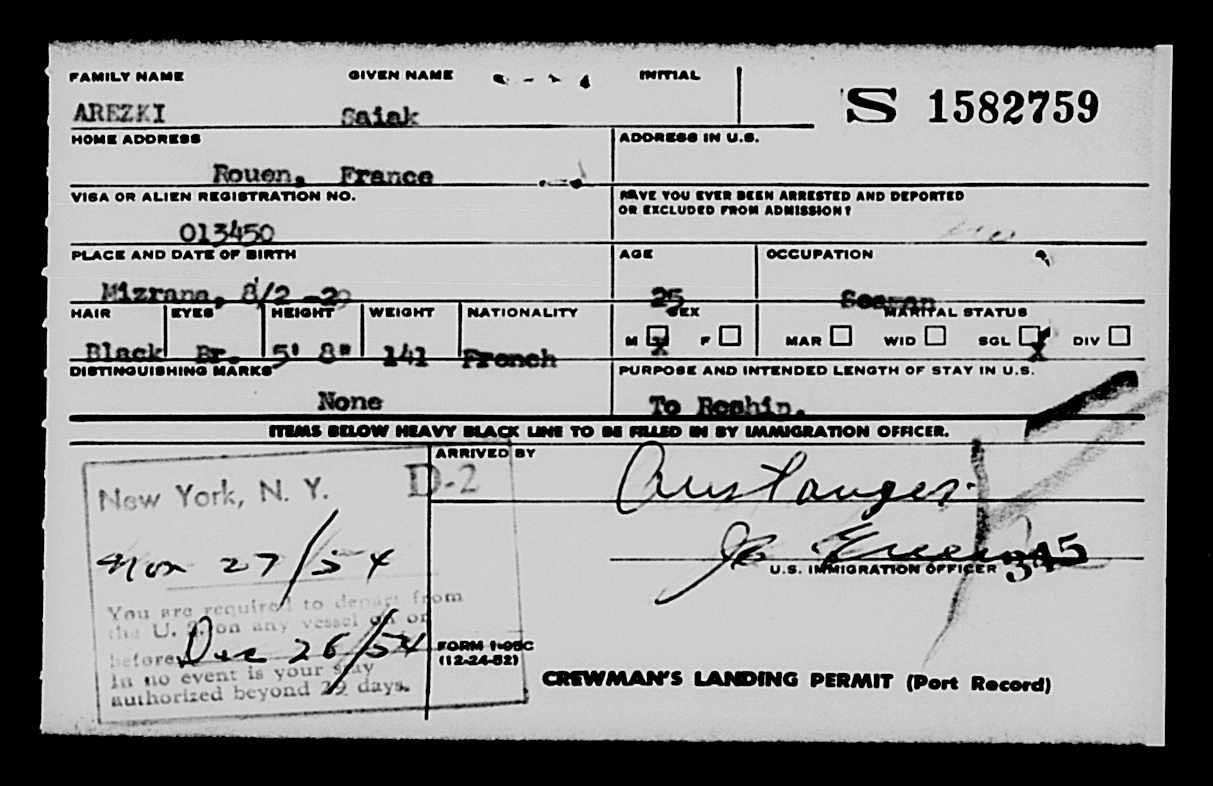 FAMILY NAME GIVEN NAME INITIAL
AREZKI Saiak S 1582759
HOME ADDRESS ADDRESS IN U.S.
Rouen, France
VISA OR ALIEN REGISTRATION NO. HAVE YOU EVER BEEN ARRESTED AND DEPORTED
OR EXCLUDED FROM ADMISSION?
013450 no
PLACE AND DATE OF BIRTH AGE OCCUPATION
Mizrana, 8/2 -29 25 Seaman
HAIR EYES HEIGHT WEIGHT NATIONALITY SEX MARITAL STATUS
M X F MAR WID SGL X DIV
Black Br. 5' 8" 141 French
DISTINGUISHING MARKS PURPOSE AND INTENDED LENGTH OF STAY IN U.S.
None To Reship.
ITEMS BELOW HEAVY BLACK LINE TO BE FILLED IN BY IMMIGRATION OFFICER.
ARRIVED BY
New York, N. Y. D-2
Nov 27/54
345
U.S. IMMIGRATION OFFICER
You are required to depart from
the U. S. on any vessel on or
before Dec 26/54
In no event is your stay
authorized beyond 29 days.
FORM I-95C
(12-24-52)
CREWMAN'S LANDING PERMIT (Port Record)